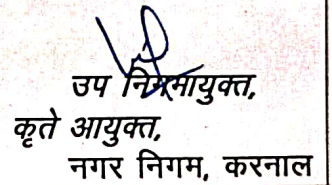 उप निगमायुक्त,
कृते आयुक्त,
नगर निगम, करनाल